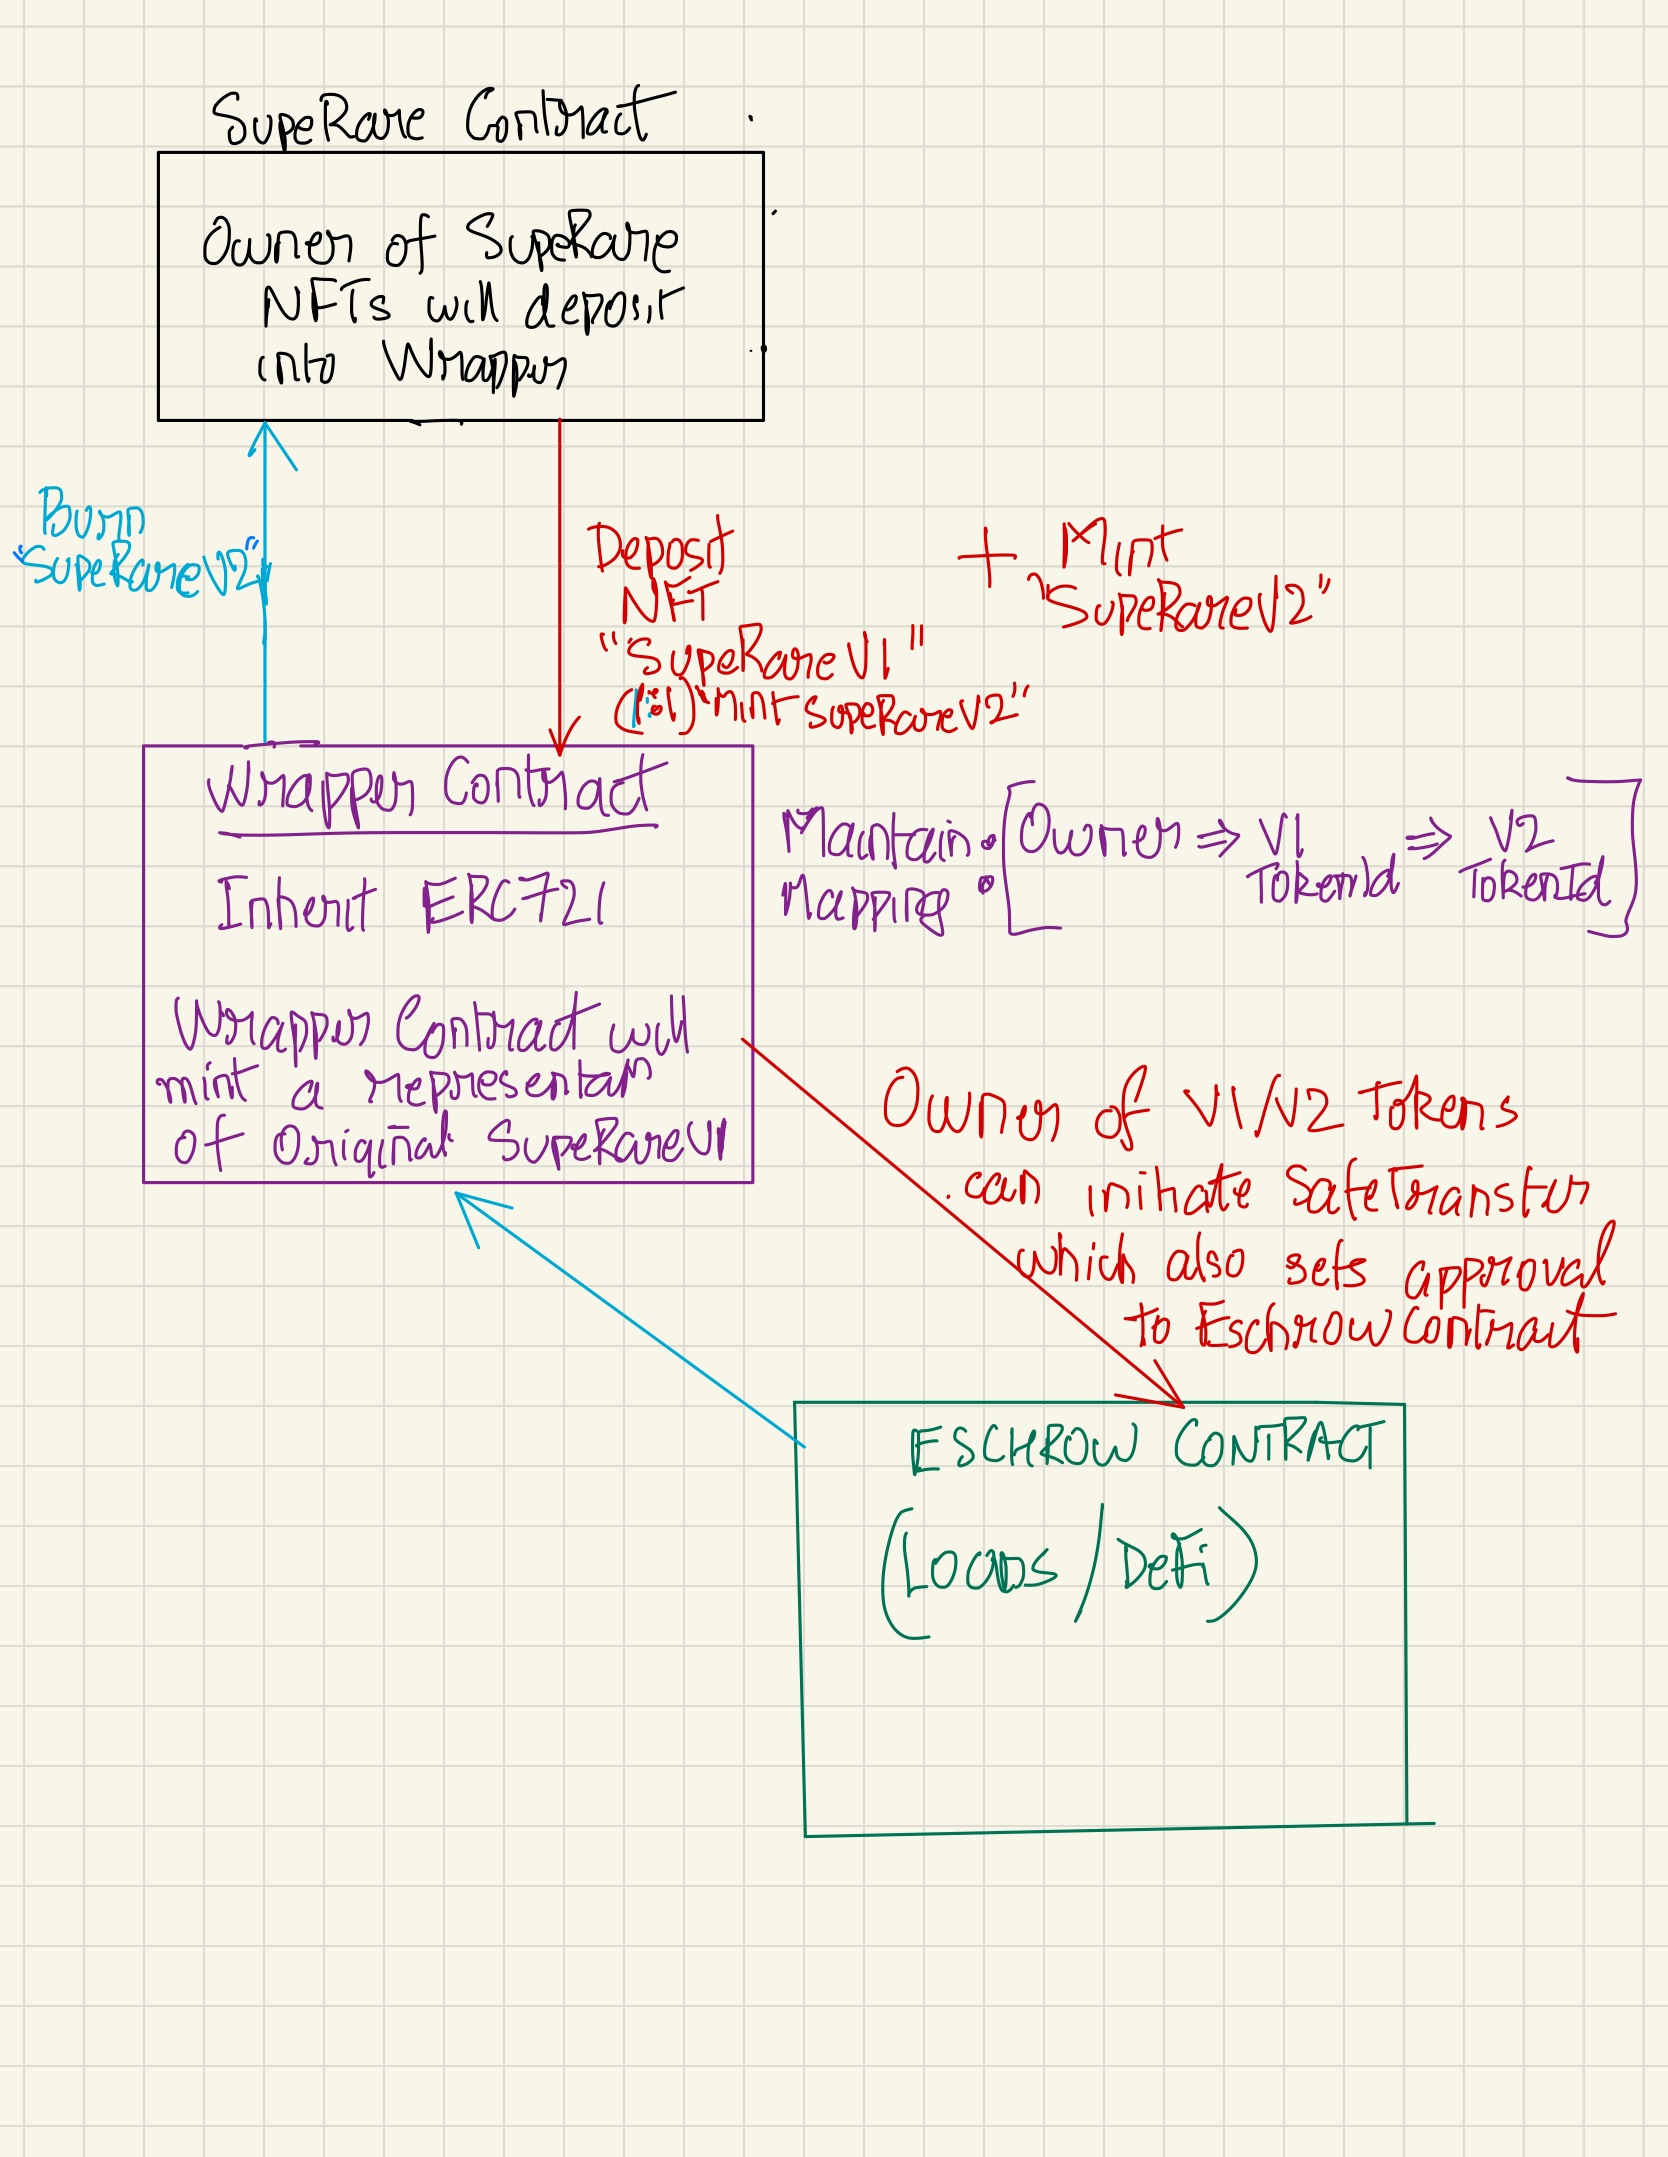 SupeRare Contract
Owner of SupeRare
NFTs will deposit
into Wrapper
Burn
"SupeRareV2"
Deposit
NFT
"SupeRare V1"
(1:1) "Mint SupeRareV2"
+ Mint
"SupeRareV2"
Wrapper Contract
Inherit ERC721
Wrapper Contract will
mint a representatn
of Original SupeRareV1
Maintain
Mapping : [Owner ⇒ V1 TokenId ⇒ V2 TokenId]
Owner of V1/V2 Tokens
can initiate SafeTransfer
which also sets approval
to Eschrow Contract
ESCHROW CONTRACT
(Loans / DeFi)